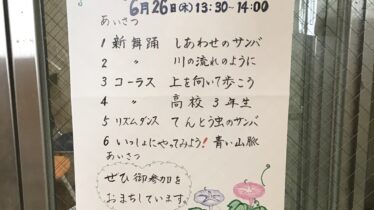 6月26日(木)13:30~14:00
あいさつ
1 新舞踊 しあわせのサンバ
2 〃 川の流れのように
3 コーラス 上を向いて歩こう
4 〃 高校3年生
5 リズムダンス てんとう虫のサンバ
6 いっしょにやってみよう! 青い山脈
あいさつ
ぜひ御参加を
おまちしています。